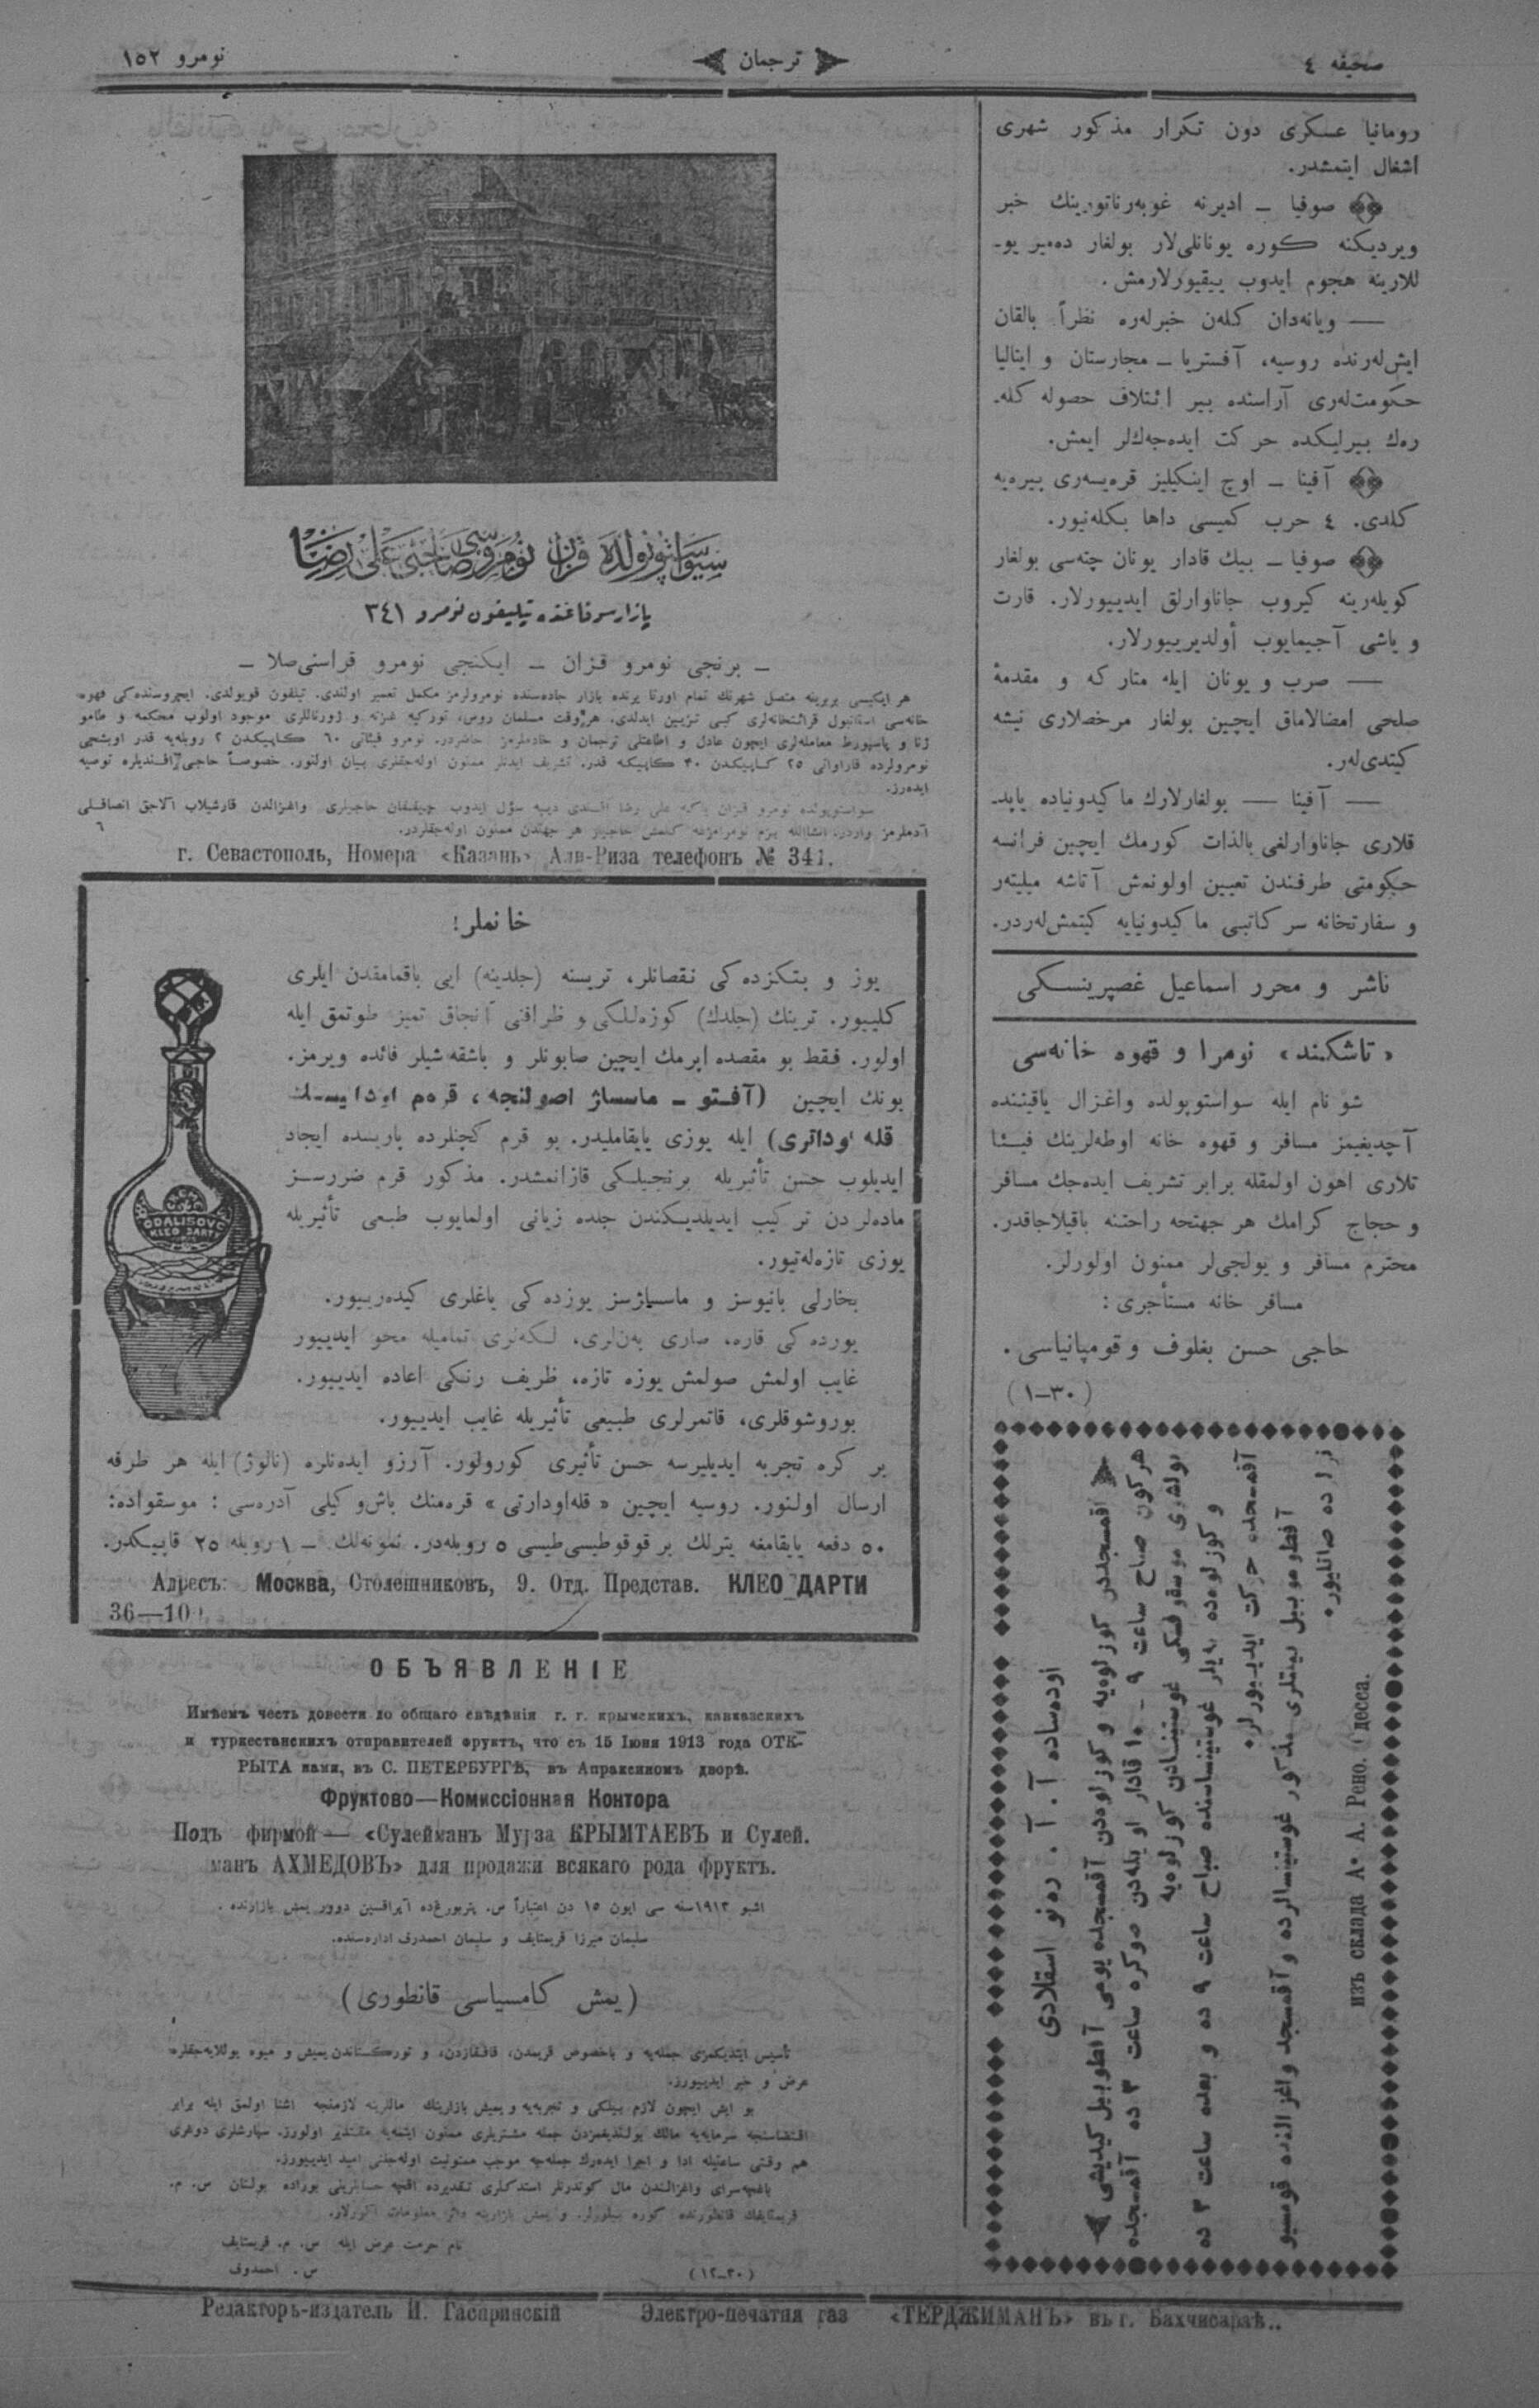 صحیفه ٤
ترجمان
نومرو ١٥٢
رومانیا عسکری دون تکرار مذکور شهری
اشغال ایتمشدر.
صوفیا — ادیرنه غوبه‌رناتورینك خبر
ویردیکنه کوره یونانلی‌لار بولغار ده‌میر یو-
للارینه هجوم ایدوب ییقیورلارمش.
— ویانه‌دان کله‌ن خبرله‌ره نظراً بالقان
ایش‌له‌رنده روسیه، آفستریا — مجارستان و ایتالیا
حکومت‌له‌ری آراسنده بیر ائتلاف حصوله کله-
ره‌ك بیرلیکده حرکت ایده‌جه‌ك‌لر ایمش.
آفینا — اوچ اینکیلیز قره‌یسه‌ری پیره‌یه
کلدی. ٤ حرب کمیسی داها بکله‌نیور.
صوفیا — بیك قادار یونان چته‌سی بولغار
کویله‌رینه کیروب جاناوارلق ایدییورلار. قارت
و یاشی آجیمایوب أولدیرییورلار.
— صرب و یونان ایله متارکه و مقدمهٔ
صلحی امضالاماق ایچین بولغار مرخصلاری نیشه
کیتدی‌له‌ر.
— آفینا — بولغارلارك ماکیدونیاده یاپد-
قلاری جاناوارلغی بالذات کورمك ایچین فرانسه
حکومتی طرفندن تعیین اولونمش آتاشه میلیته‌ر
و سفارتخانه سرکاتبی ماکیدونیایه کیتمش‌له‌ردر.
ناشر و محرر اسماعیل غصپرینسکی
«تاشکند» نومرا و قهوه خانه‌سی
شو نام ایله سواستوپولده واغزال یاقیننده
آچدیغیمز مسافر و قهوه خانه اوطه‌لرینك فیئا
تلاری اهون اولمقله برابر تشریف ایده‌جك مسافر
و حجاج کرامك هر جهتجه راحتنه باقیلاجاقدر.
محترم مسافر و یولجی‌لر ممنون اولورلر.
مسافر خانه مستأجری:
حاجی حسن بغلوف و قومپانیاسی.
(٣٠—١)
اوده‌ساده آ. آ. ره‌نو اسقلادی
آقمسجددن کوزلوه‌یه و کوزلوه‌دن آقمسجده یومی آطوبیل کیدیشی
هرکون صباح ساعت ٩ – ١٠ قادار اویله‌دن صوکره ساعت ٣ ده آقمسجده
بولشوی موسقوفسکی غوستینسادن کوزلوه‌یه
و کوزلوه‌ده به‌یلر غوستینساسنده صباح ساعت ٩ ده و بعده ساعت ٣ ده
آقمسجده حرکت ایدییورلر.
آفطوموبیل بیلتلری مذکور غوستینسالرده و آقمسجد واغزالنده قوسیو
نرا ده صاتلیور.
изъ склада А. А. Рено. Одесса.
سیواستوپولده قزان نومروسی صاحبی علی رضا
بازار سوقاغنده تیلیفون نومرو ٣٤١
— برنجی نومرو قزان — ایکنجی نومرو قراسنی‌صلا —
هر ایکیسی بربرینه متصل شهرنك تمام اورتا یرنده بازار جاده‌سنده نومرولرمز مکمل تعمیر اولندی. تیلفون قویولدی. ایچروسنده‌کی قهوه
خانه‌سی استانبول قرائتخانه‌لری کبی تزیین ایدلدی. هروقت مسلمان روس، تورکیه غزته و ژورناللری موجود اولوب محکمه و طامو
ژنا و پاسپورط معامله‌لری ایچون عادل و اطاعتلی ترجمان و خادملرمز حاضردر. نومرو فیئاتی ٦٠ کاپیکدن ٢ روبله‌یه قدر اویشجی
نومرولرده قاراواتی ٢٥ کاپیکدن ۴٠ کاپیکه قدر. تشریف ایدنلر ممنون اوله‌جقلری بیان اولنور. خصوصاً حاجی افندیلره توصیه
ایده‌رز.
آدملرمز واردر. انشاالله بزم نومرامزغه کلمش حاجیلر هر جهتدن ممنون اوله‌جقلردر.
٦
г. Севастополь, Номера «Казань» Али-Риза телефонъ № 341.
خانملر!
یوز و بتکزده‌کی نقصانلر، تریسنه (جلدینه) ایی باقمامقدن ایلری
کلییور. ترینك (جلدك) کوزه‌للکی و ظرافتی آنجاق تمیز طوتمق ایله
اولور. فقط بو مقصده ایرمك ایچین صابونلر و باشقه شیلر فائده ویرمز.
بونك ایچین (آفتو — ماساژ اصولنجه، قره‌م اودالیسك
قله ئوداتری) ایله یوزی یایقاملیدر. بو قرم کچنلرده پاریسده ایجاد
ایدیلوب حسن تأثیریله برنجیلکی قازانمشدر. مذکور قرم ضررسز
ماده‌لردن ترکیب ایدیلدیکندن جلده زیانی اولمایوب طبیعی تأثیریله
یوزی تازه‌له‌تیور.
بخارلی بانیوسز و ماساژسز یوزده‌کی یاغلری کیده‌رییور.
یوزده‌کی قاره، صاری به‌ن‌لری، لکه‌لری تمامیله محو ایدییور
غایب اولمش صولمش یوزه تازه، ظریف رنکی اعاده ایدییور.
بوروشوقلری، قاتمرلری طبیعی تأثیریله غایب ایدییور.
بر کره تجربه ایدیلیرسه حسن تأثیری کورولور. آرزو ایده‌نلره (نالوژ) ایله هر طرفه
ارسال اولنور. روسیه ایچین «قله‌اودارتی» قره‌منك باش‌وکیلی آدره‌سی: موسقواده:
٥٠ دفعه یایقامغه یترلك بر قوقوطیسی‌طیسی ٥ روبله‌در. نمونه‌لك — ١ روبله ٢٥ قاپیکدر.
ODALISQVE
KLEO DARTI
Адресъ: Москва, Столешниковъ, 9. Отд. Представ. КЛЕО ДАРТИ
36—10
ОБЪЯВЛЕНІЕ
Имѣемъ честь довести до общаго свѣдѣнія г. г. крымскихъ, кавказскихъ
и туркестанскихъ отправителей фруктъ, что съ 15 Іюня 1913 года ОТК-
РЫТА нами, въ С. ПЕТЕРБУРГѢ, въ Апраксиномъ дворѣ.
Фруктово—Комиссіонная Контора
Подъ фирмой — «Сулейманъ Мурза КРЫМТАЕВЪ и Сулей.
манъ АХМЕДОВЪ» для продажи всякаго рода фруктъ.
اشبو ١٩١٣سنه سی ایون ١٥ دن اعتباراً س. پتربورغ‌ده آپراقسین دوور یمش بازارنده.
سلیمان میرزا قریمتایف و سلیمان احمدوف اداره‌سنده.
(یمش کامسیاسی قانطوری)
تأسیس ایتدیکمزی جمله‌یه و باخصوص قریمدن، قافقازدن، و تورکستاندن یمیش و میوه یوللایه‌جقلره
عرض و خبر ایدییورز.
بو ایش ایچون لازم بیلکی و تجربه‌یه و یمیش بازارینك ماللرینه لازمنجه اشنا اولمق ایله برابر
اقتضاسنجه سرمایه‌یه مالك بولندیغمزدن جمله مشتریلری ممنون ایتمه‌یه مقتدیر اولورز. سپارشلری دوغری
هم وقتی ساعتیله ادا و اجرا ایده‌رك جمله‌جه موجب ممنونیت اوله‌جغنی امید ایدییورز.
باغچه‌سرای واغزالندن مال کوندرنلر استدکلری تقدیرده اقچه حسابلرینی بوراده بولنان س. م.
قریمتایفك قانطورنده کوره بیلورلر. و یمش بازارینه دائر معلومات آلورلار.
تام حرمت عرض ایله س. م. قریمتایف
س. احمدوف
(٣٠—١٢)
Редакторъ-издатель И. Гаспринскій Электро-печатня газ «ТЕРДЖИМАНЪ» въ г. Бахчисараѣ..